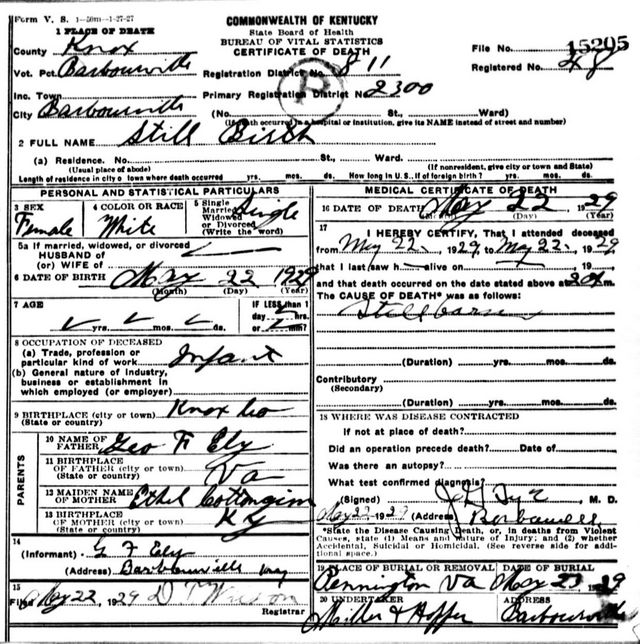 Form V. S. 1-50m-1-27-27
COMMONWEALTH OF KENTUCKY
State Board of Health
BUREAU OF VITAL STATISTICS
CERTIFICATE OF DEATH
1 PLACE OF DEATH
County Knox
File No. 15205
Vot. Pct. Barbourville
Registration District No. 811
Registered No. 48
Inc. Town
Primary Registration District No. 2300
City Barbourville (No. St., Ward)
(If death occurred in a hospital or institution, give its NAME instead of street and number)
2 FULL NAME Still Birth
(a) Residence. No. St., Ward.
(Usual place of abode) (If nonresident, give city or town and State)
Length of residence in city o town where death occurred yrs. mos. ds. How long in U.S., if of foreign birth? yrs. mos. ds.
PERSONAL AND STATISTICAL PARTICULARS
3 SEX Female
4 COLOR OR RACE White
5 Single Married Widowed or Divorced (Write the word) Single
5a If married, widowed, or divorced
HUSBAND of
(or) WIFE of
6 DATE OF BIRTH May 22 1929
(Month) (Day) (Year)
7 AGE yrs. mos. ds.
IF LESS than 1
day hrs.
or min?
8 OCCUPATION OF DECEASED
(a) Trade, profession or
particular kind of work Infant
(b) General nature of Industry,
business or establishment in
which employed (or employer)
9 BIRTHPLACE (city or town) Knox Co
(State or country)
PARENTS
10 NAME OF
FATHER Geo F Ely
11 BIRTHPLACE
OF FATHER (city or town) Va
(State or country)
12 MAIDEN NAME
OF MOTHER Ethel Cottongim
13 BIRTHPLACE
OF MOTHER (city or town) Ky
(State or country)
14
(Informant) G F Ely
(Address) Barbourville Ky
15
Filed May 22, 1929 D T Wilson
Registrar
MEDICAL CERTIFICATE OF DEATH
16 DATE OF DEATH May 22, 1929
(Month) (Day) (Year)
17
I HEREBY CERTIFY, That I attended deceased
from May 22, 1929, to May 22, 1929
that I last saw h alive on 19
and that death occurred on the date stated above at m.
The CAUSE OF DEATH* was as follows:
Still born
(Duration) yrs. mos. ds.
Contributory
(Secondary)
(Duration) yrs. mos. ds.
18 WHERE WAS DISEASE CONTRACTED
If not at place of death?
Did an operation precede death? Date of
Was there an autopsy?
What test confirmed diagnosis?
(Signed) M. D.
May 22, 1929 (Address)
*State the Disease Causing Death, or, in deaths from Violent
Causes, state (1) Means and nature of Injury; and (2) whether
Accidental, Suicidal or Homicidal. (See reverse side for addi-
tional space.)
19 PLACE OF BURIAL OR REMOVAL DATE OF BURIAL
Pennington Va May 23 1929
20 UNDERTAKER ADDRESS
Miller & Hopper Barbourville